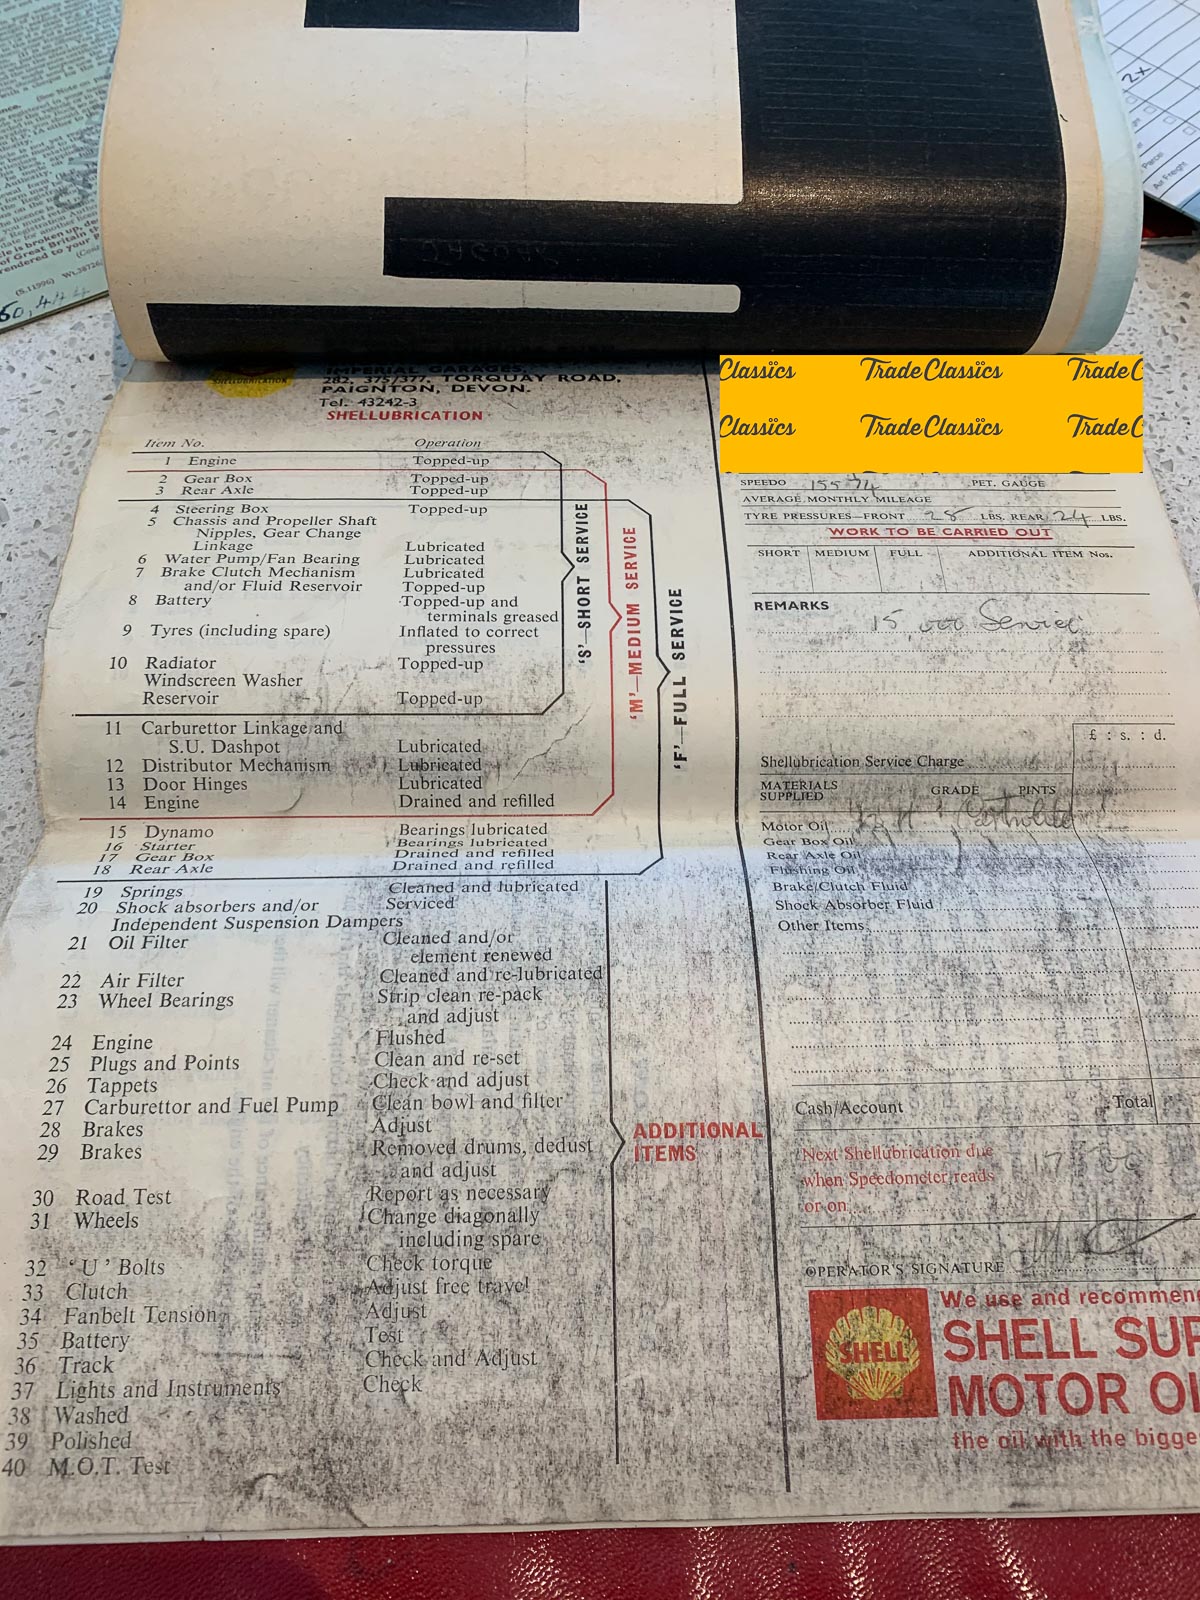 JAGUAR
2x
Parcel
Air Freight
(S.11996)
60,444
TradeClassics
Classics TradeClassics TradeC
Classics TradeClassics TradeC
SHELLUBRICATION
IMPERIAL GARAGES,
282, 375/377, TORQUAY ROAD,
PAIGNTON, DEVON.
Tel. 43242-3
SHELLUBRICATION
Item No. Operation
1 Engine Topped-up
2 Gear Box Topped-up
3 Rear Axle Topped-up
4 Steering Box Topped-up
5 Chassis and Propeller Shaft
Nipples, Gear Change
Linkage Lubricated
6 Water Pump/Fan Bearing Lubricated
7 Brake Clutch Mechanism Lubricated
and/or Fluid Reservoir Topped-up
8 Battery Topped-up and
terminals greased
9 Tyres (including spare) Inflated to correct
pressures
10 Radiator Topped-up
Windscreen Washer
Reservoir Topped-up
11 Carburettor Linkage and
S.U. Dashpot Lubricated
12 Distributor Mechanism Lubricated
13 Door Hinges Lubricated
14 Engine Drained and refilled
15 Dynamo Bearings lubricated
16 Starter Bearings lubricated
17 Gear Box Drained and refilled
18 Rear Axle Drained and refilled
'S'—SHORT SERVICE
'M'—MEDIUM SERVICE
'F'—FULL SERVICE
19 Springs Cleaned and lubricated
20 Shock absorbers and/or Serviced
Independent Suspension Dampers
21 Oil Filter Cleaned and/or
element renewed
22 Air Filter Cleaned and re-lubricated
23 Wheel Bearings Strip clean re-pack
and adjust
24 Engine Flushed
25 Plugs and Points Clean and re-set
26 Tappets Check and adjust
27 Carburettor and Fuel Pump Clean bowl and filter
28 Brakes Adjust
29 Brakes Removed drums, dedust
and adjust
30 Road Test Report as necessary
31 Wheels Change diagonally
including spare
32 'U' Bolts Check torque
33 Clutch Adjust free travel
34 Fanbelt Tension Adjust
35 Battery Test
36 Track Check and Adjust
37 Lights and Instruments Check
38 Washed
39 Polished
40 M.O.T. Test
ADDITIONAL
ITEMS
SPEEDO 15574 PET. GAUGE
AVERAGE MONTHLY MILEAGE
TYRE PRESSURES—FRONT 28 LBS. REAR 24 LBS.
WORK TO BE CARRIED OUT
SHORT MEDIUM FULL ADDITIONAL ITEM Nos.
REMARKS
15,000 Service
£ : s. : d.
Shellubrication Service Charge
MATERIALS
SUPPLIED GRADE PINTS
Motor Oil
Gear Box Oil
Rear Axle Oil
Flushing Oil
Brake/Clutch Fluid
Shock Absorber Fluid
Other Items
Cash/Account Total
Next Shellubrication due
when Speedometer reads
or on
OPERATOR'S SIGNATURE
SHELL
We use and recommen
SHELL SUP
MOTOR OI
the oil with the bigge